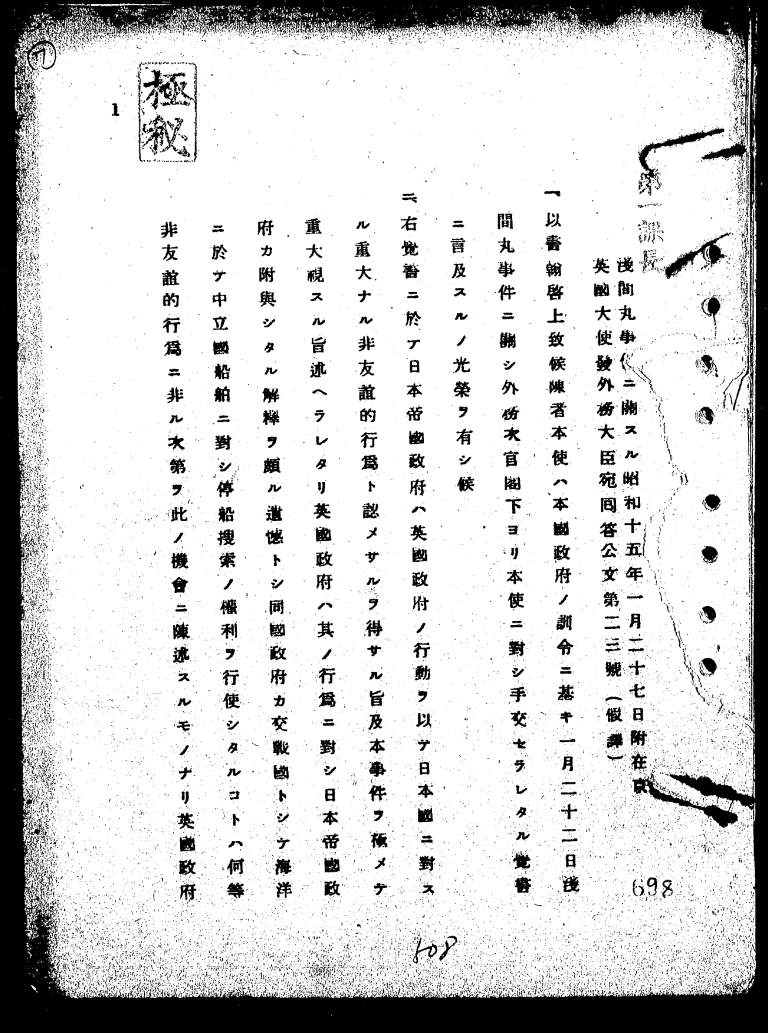 極秘
1
第一課長
淺間丸事件ニ關スル昭和十五年一月二十七日附在京
英國大使發外務大臣宛囘答公文第二三號（假譯）
一、以書翰啓上致候陳者本使ハ本國政府ノ訓令ニ基キ一月二十二日淺
間丸事件ニ關シ外務次官閣下ヨリ本使ニ對シ手交セラレタル覺書
ニ言及スルノ光榮ヲ有シ候
二、右覺書ニ於テ日本帝國政府ハ英國政府ノ行動ヲ以テ日本國ニ對ス
ル重大ナル非友誼的行爲ト認メサルヲ得サル旨及本事件ヲ極メテ
重大視スル旨述ヘラレタリ英國政府ハ其ノ行爲ニ對シ日本帝國政
府カ附與シタル解釋ヲ頗ル遺憾トシ同國政府カ交戰國トシテ海洋
ニ於テ中立國船舶ニ對シ停船搜索ノ權利ヲ行使シタルコトハ何等
非友誼的行爲ニ非ル次第ヲ此ノ機會ニ陳述スルモノナリ英國政府
698
508